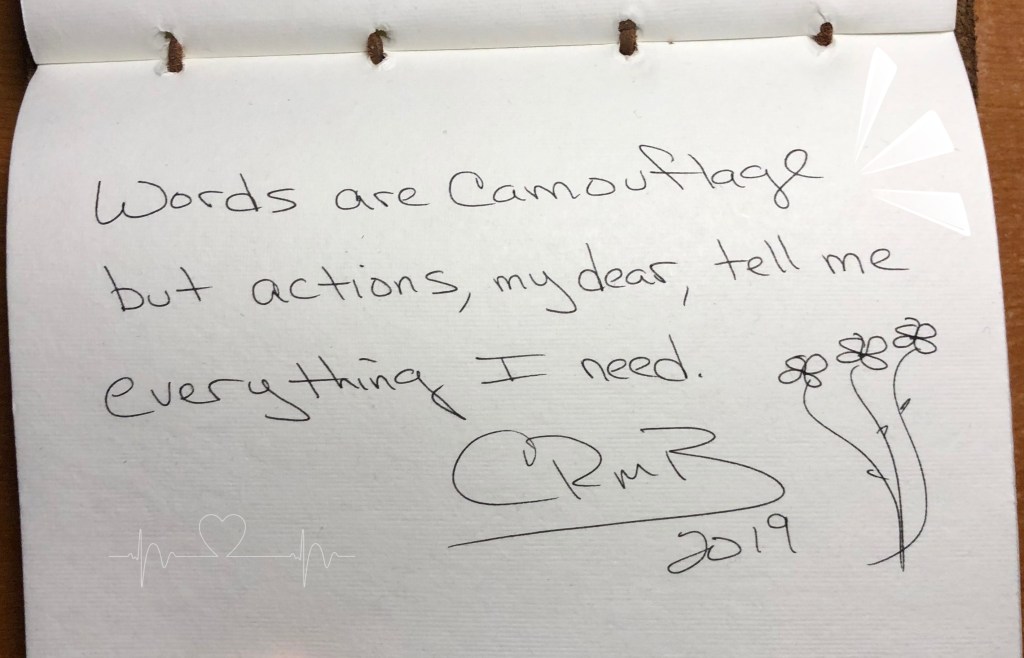 Words are Camouflage
but actions, my dear, tell me
everything I need.
CRMB
2019